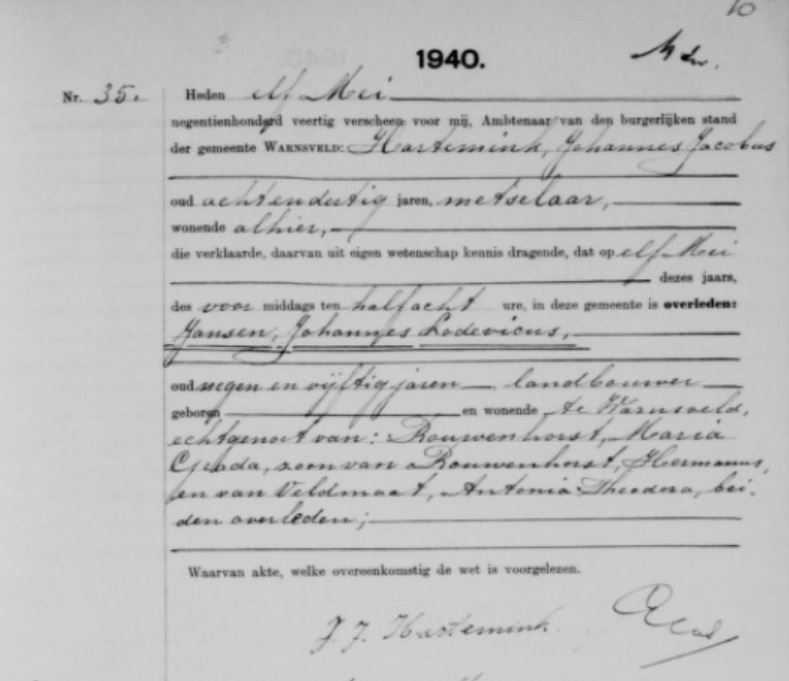 10
1940.
Nr. 35. Heden elf Mei
negentienhonderd veertig verscheen voor mij, Ambtenaar van den burgerlijken stand
der gemeente WARNSVELD: Hartemink, Johannes Jacobus
oud achtendertig jaren, metselaar,
wonende alhier,
die verklaarde, daarvan uit eigen wetenschap kennis dragende, dat op elf Mei
dezes jaars,
des voor middags ten half acht ure, in deze gemeente is overleden:
Jansen, Johannes Lodevicus,
oud negen en vijftig jaren landbouwer
geboren en wonende te Warnsveld,
echtgenoot van: Rouwenhorst, Maria
Grada, zoon van Rouwenhorst, Hermanus,
en van Veldmaat, Antonia Theodora, bei-
den overleden;
Waarvan akte, welke overeenkomstig de wet is voorgelezen.
J. J. Hartemink